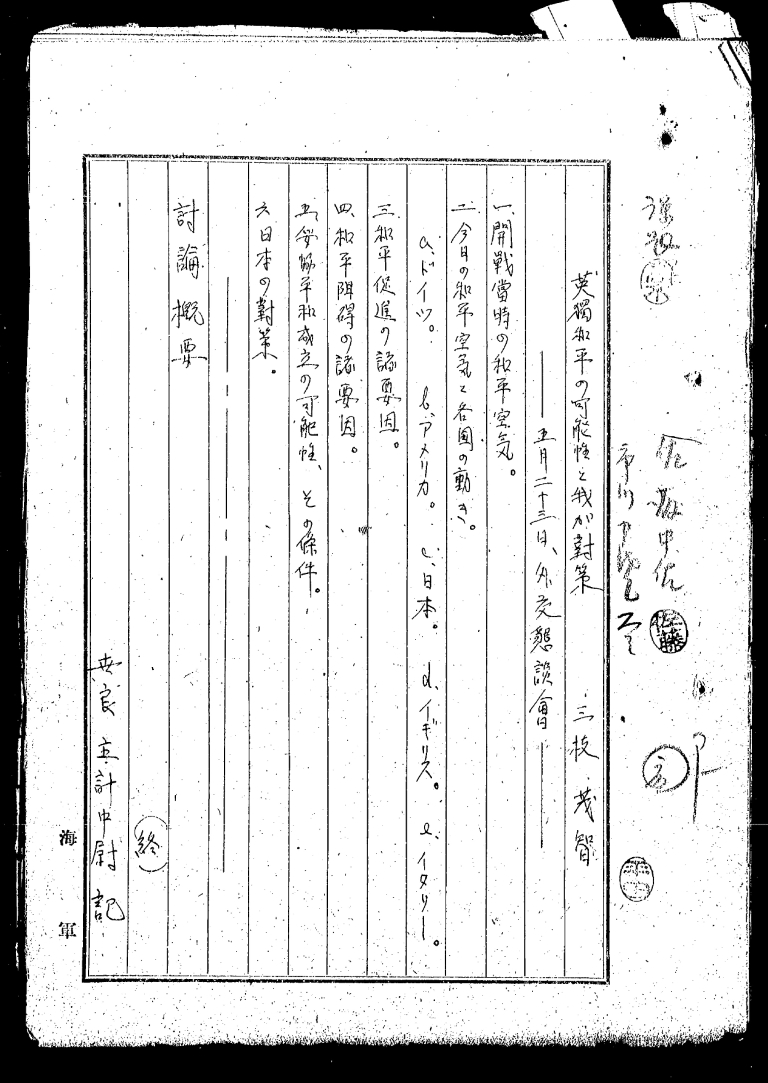 佐藤中佐 佐藤
英獨和平の可能性と我が對策 三枝茂智
——五月二十三日、外交懇談會——
一、開戰當時の和平空気。
二、今日の和平空気と各国の動き。
a、ドイツ。 b、アメリカ。 c、日本。 d、イギリス。 e、イタリー。
三、和平促進の諸要因。
四、和平阻碍の諸要因。
五、妥協平和成立の可能性、その條件。
六、日本の對策。
討論概要
終
主計中尉 記
海軍